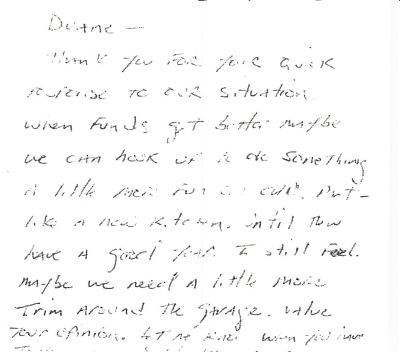 Duane —
Thank you for your quick
response to our situation.
When funds get better maybe
we can hook up to do something
a little more fun
like a new kitchen. until then
have a good year. I still feel
maybe we need a little more
trim around the garage. value
your opinion. let me know when you have